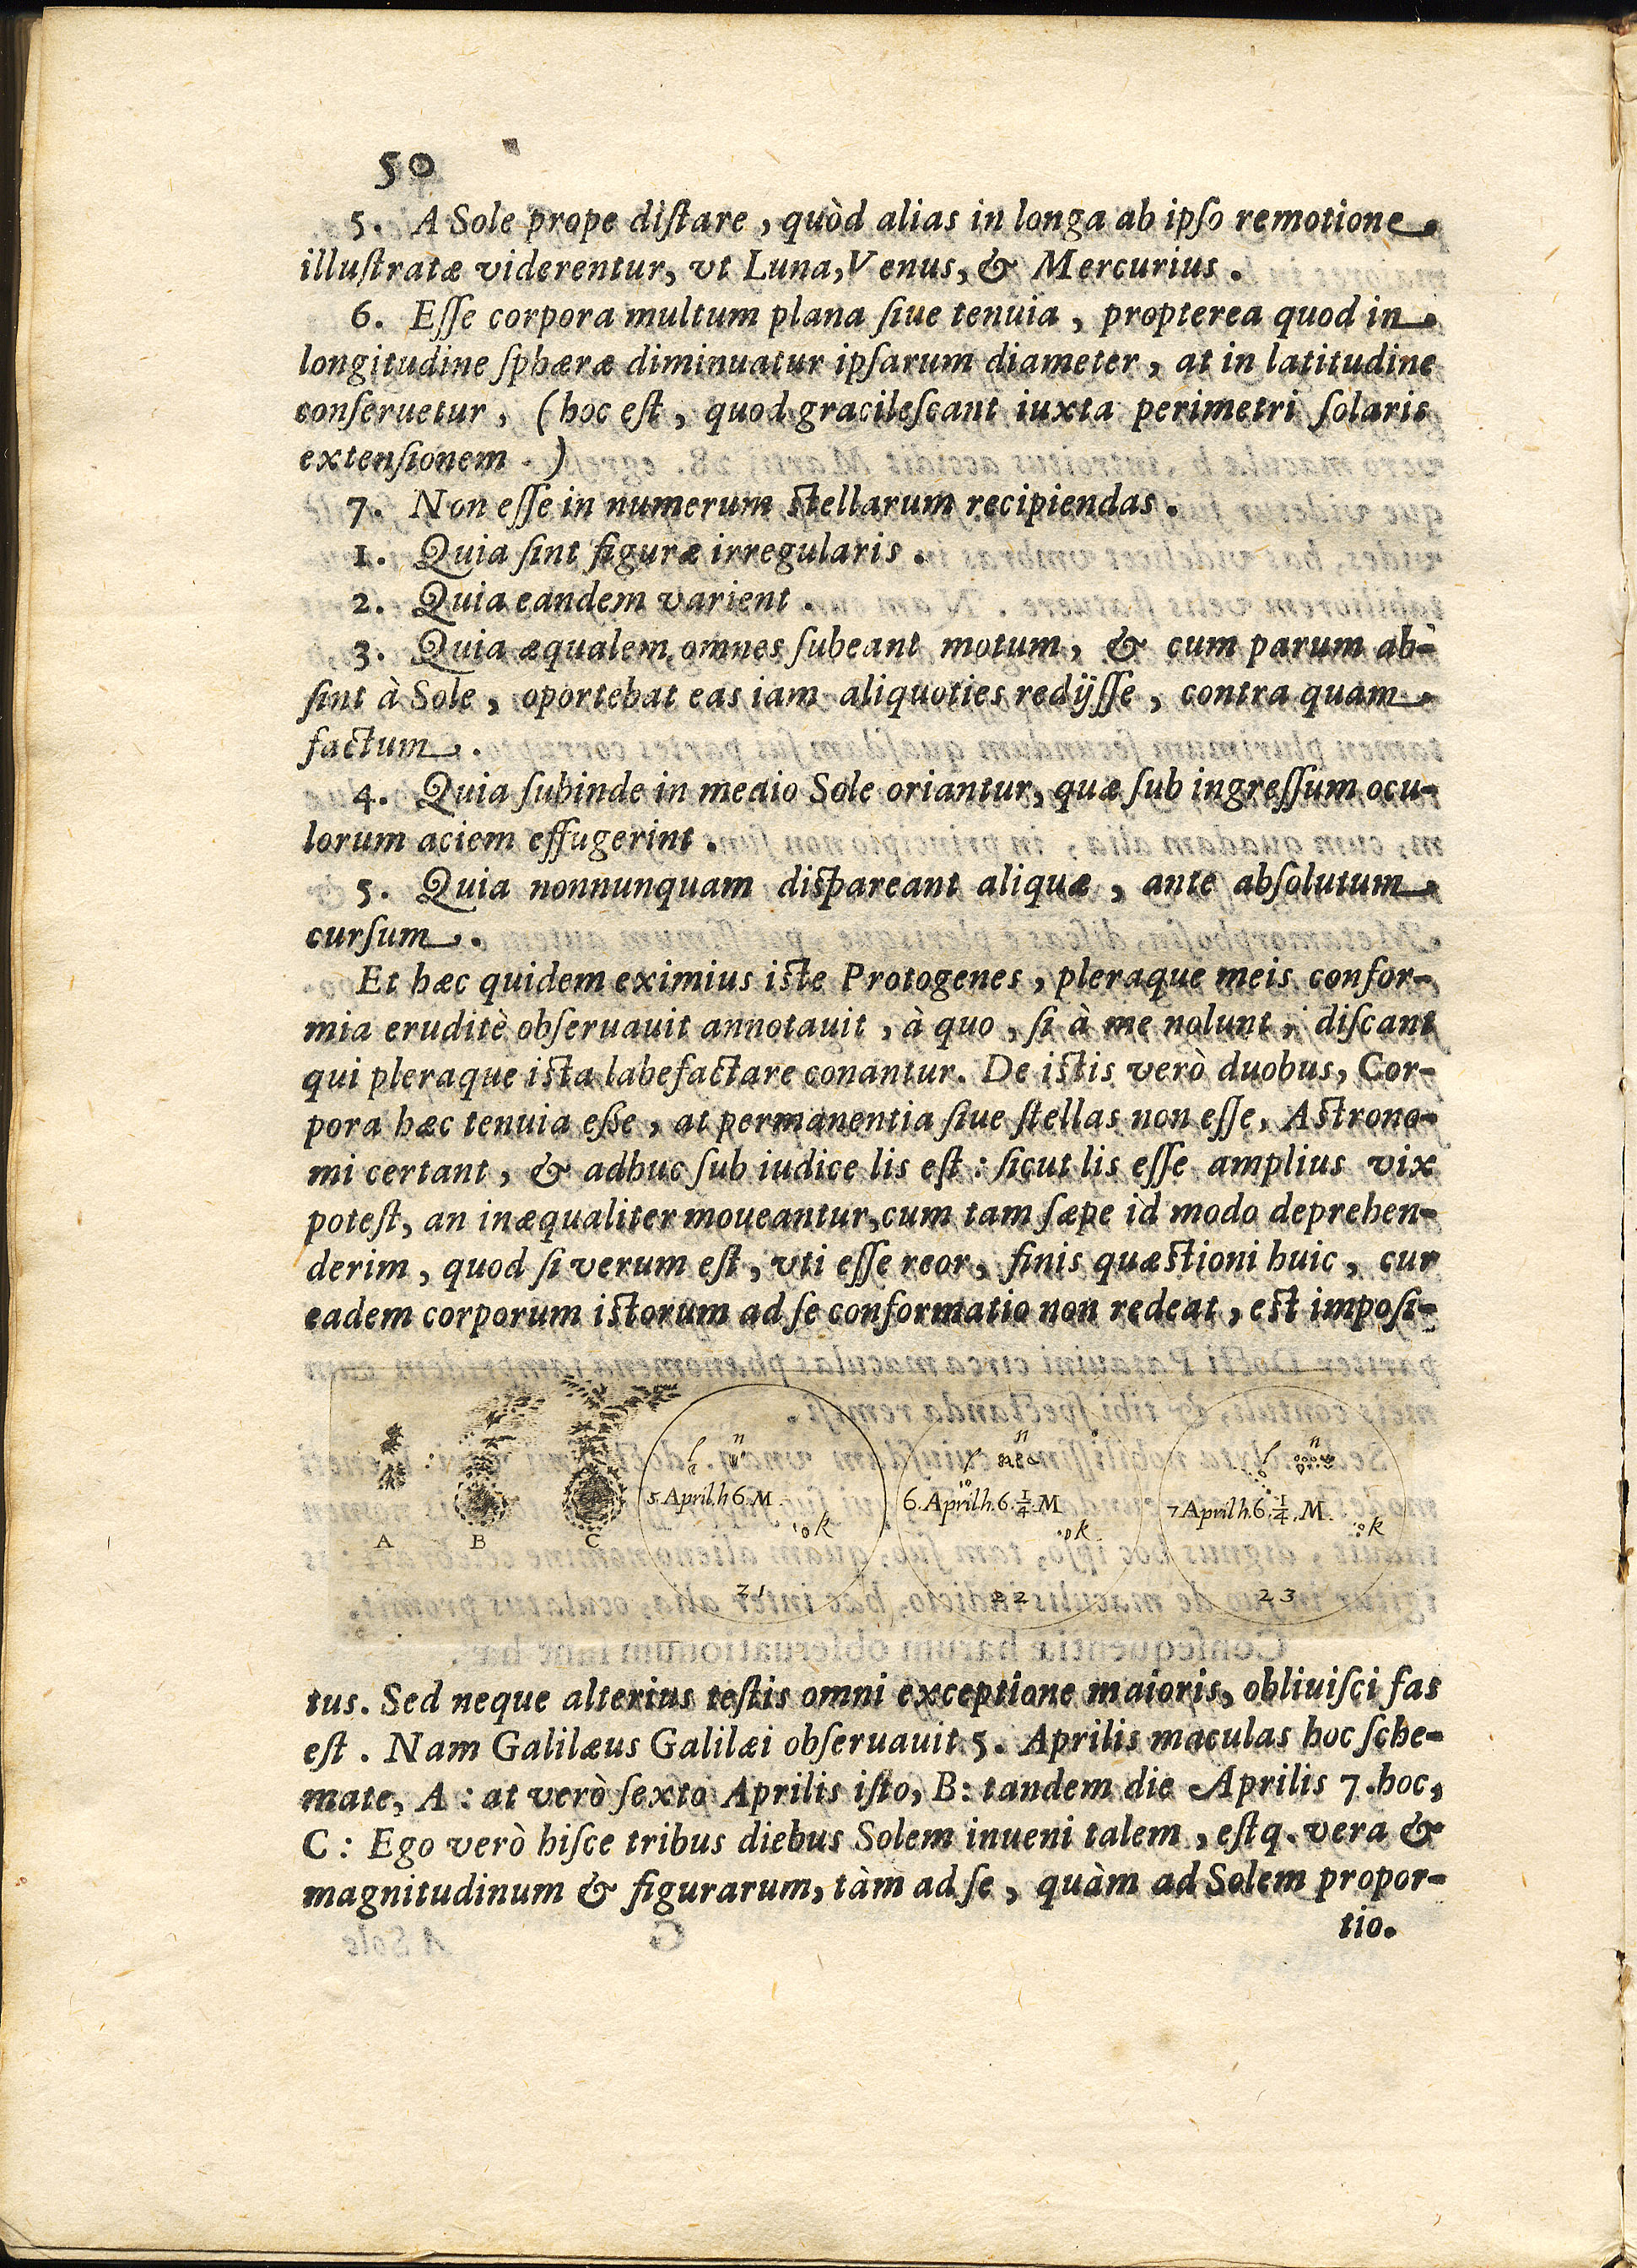 50
5. A Sole prope diſtare, quòd alias in longa ab ipſo remotione
illuſtratæ viderentur, vt Luna, Venus, & Mercurius.
6. Eſſe corpora multum plana ſiue tenuia, propterea quod in
longitudine ſphæræ diminuatur ipſarum diameter, at in latitudine
conſeruetur, (hoc eſt, quod gracileſcant iuxta perimetri ſolaris
extenſionem )
7. Non eſſe in numerum ſtellarum recipiendas.
1. Quia ſint figuræ irregularis.
2. Quia eandem varient.
3. Quia æqualem omnes ſubeant motum, & cum parum ab-
ſint à Sole, oportebat eas iam aliquoties redijſſe, contra quam
factum.
4. Quia ſubinde in medio Sole oriantur, quæ ſub ingreſſum ocu-
lorum aciem effugerint.
5. Quia nonnunquam diſpareant aliquæ, ante abſolutum
curſum.
Et hæc quidem eximius iſte Protogenes, pleraque meis confor-
mia eruditè obſeruauit annotauit, à quo, ſi à me nolunt, diſcant
qui pleraque iſta labefactare conantur. De iſtis verò duobus, Cor-
pora hæc tenuia eſse, at permanentia ſiue ſtellas non eſſe, Aſtrono-
mi certant, & adhuc ſub iudice lis eſt: ſicut lis eſſe amplius vix
poteſt, an inæqualiter moueantur, cum tam ſæpe id modo deprehen-
derim, quod ſi verum eſt, vti eſſe reor, finis quæſtioni huic, cur
eadem corporum iſtorum ad ſe conformatio non redeat, eſt impoſi-
A B C
l n
5. April. h 6. M.
k
21
l n
6. April. h. 6. 1/4. M
k
22
l n
7 April h. 6. 1/4. M.
k
23
tus. Sed neque alterius teſtis omni exceptione maioris, obliuiſci fas
eſt. Nam Galilæus Galilæi obſeruauit 5. Aprilis maculas hoc ſche-
mate, A: at verò ſexto Aprilis iſto, B: tandem die Aprilis 7. hoc,
C: Ego verò hiſce tribus diebus Solem inueni talem, eſtq. vera &
magnitudinum & figurarum, tàm ad ſe, quàm ad Solem propor-
tio.